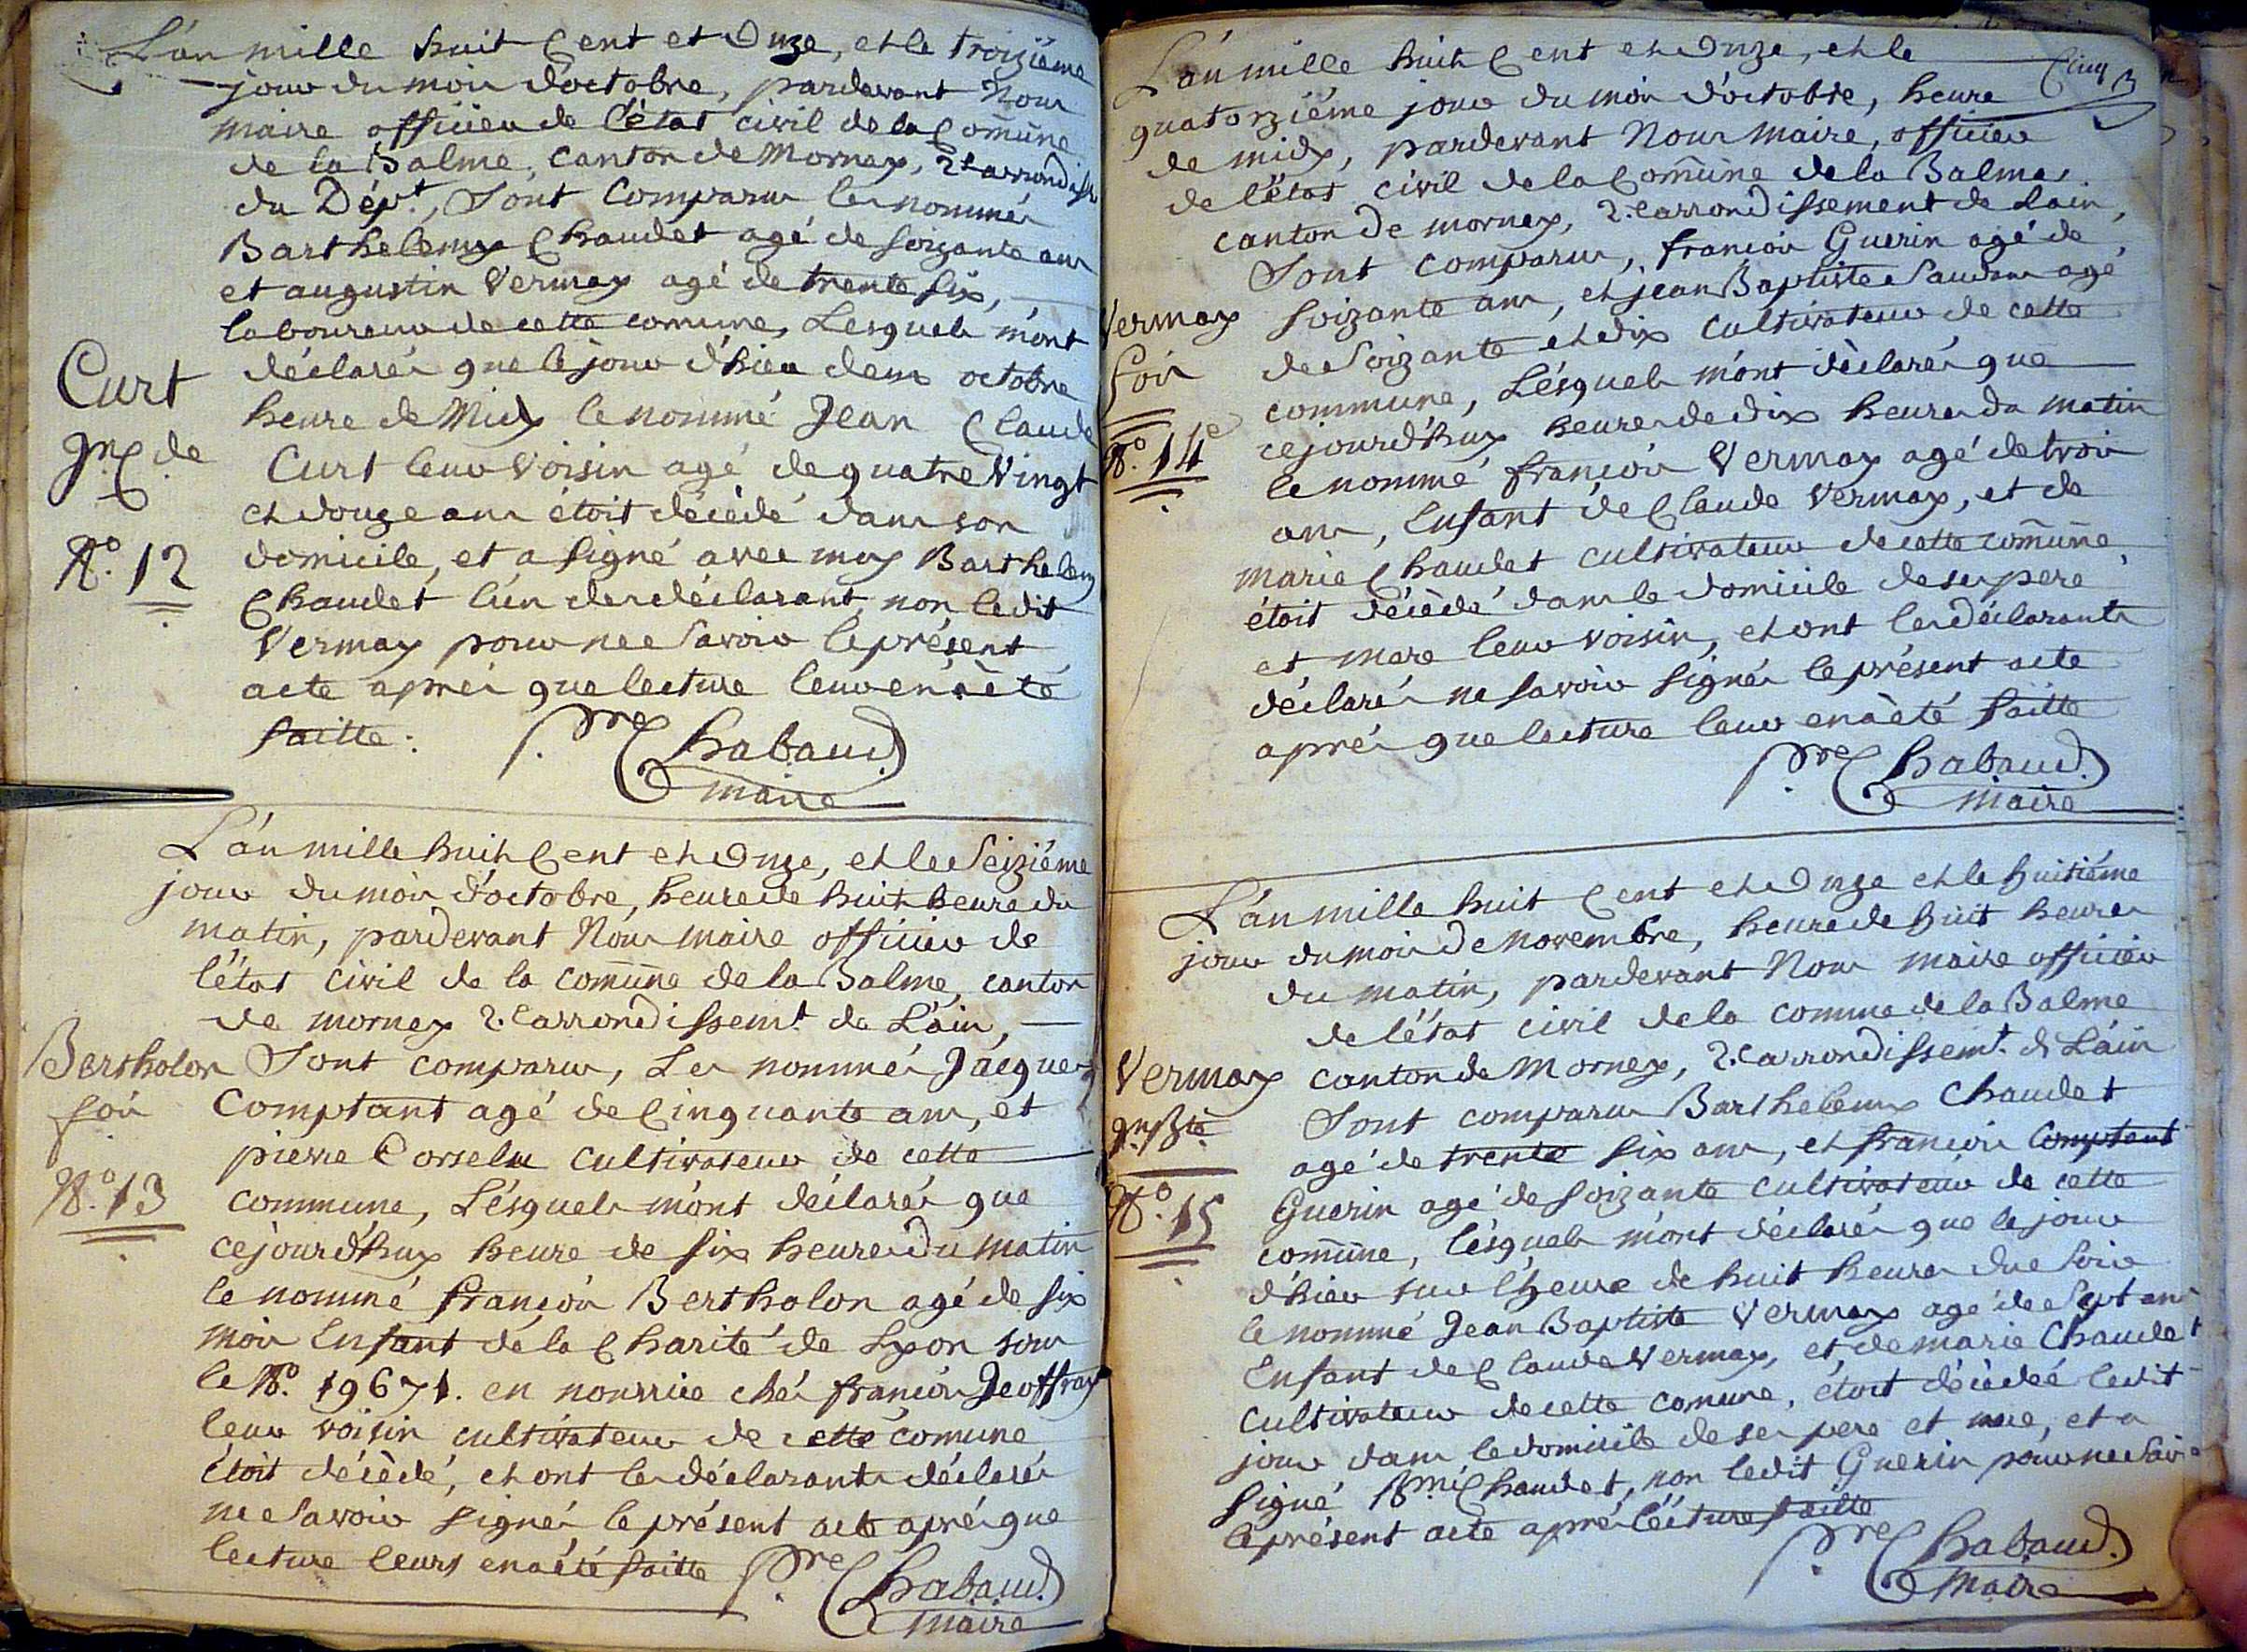 L'an mille huit Cent et Onze, et le troiziéme
jour du mois d'octobre, pardevant Nous
maire officier de l'état civil de la Comune
de la Balme, canton de Mornay, 2e arrondisst
du Dépt, Sont Comparus les nommés
Barthelemy Chaudet agé de soizante ans
et augustin Vermay agé de trente six,
laboureurs de cette comune, Lesquels m'ont
déclarés que le jour d'hier deux octobre
Curt
heure de Midy le nommé Jean Claude
Jn Cde
Curt leur voisin agé de quatre Vingt
et douze ans étoit décèdé dans son
No. 12
domicile, et a signé avec moy Barthelemy
Chaudet l'un des déclarant, non ledit
Vermay pour ne savoir le présent
acte aprés que lecture leur en à èté
faitte.
P.re Chabaud.
maire
L'an mille huit Cent et Onze, et le Seiziéme
jour du mois d'octobre, heure de huit heures du
matin, pardevant Nous maire officier de
l'état civil de la comune de la Balme, canton
de mornay 2.e arrondissemt de L'ain,
Bertholon
Sont comparus, Les nommés Jacques
fois
Comptant agé de Cinquante ans, et
pierre Corselu cultivateurs de cette
No. 13
commune, Lésquels m'ont déclarés que
cejourd'huy heure de six heures du matin
le nommé françois Bertholon agé de six
mois Enfant de la Charité de Lyon sous
le No. 19671. en nourrice chés françois Jeoffray
leur voisin cultivateur de cette comune
étoit décèdé, et ont les déclarants déclarés
ne savoir signér le présent acte aprés que
lecture leurs en a été faitte
P.re Chabaud.
maire
L'an mille huit Cent et Onze, et le
Cinq
quatorziéme jour du mois d'octobre, heure
de midy, pardevant Nous maire, officier
de l'état civil de la Comune de la Balme,
canton de mornay, 2.e arrondissement de Lain,
Sont comparus, françois Guerin agé de
Vermay
soizante ans, et jean Baptiste Saudan agé
fois
de soizante et dix cultivateurs de cette
commune, Lésquels m'ont dèclarés que
No. 14e
cejourd'huy heures de dix heures du matin
le nommé françois Vermay agé de trois
ans, Enfant de Claude Vermay, et de
marie Chaudet cultivateur de cette comune,
étoit décèdé dans le domicile de ses pere
et mere leur voisin, et ont les déclarants
déclarés ne savoir signér le présent acte
aprés que lecture leur en à été faitte
P.re Chabaud.
maire
L'an mille huit Cent et Onze et le huitiéme
jour du mois de Novembre, heure de huit heures
du matin, pardevant Nous maire officier
de l'état civil de la comune de la Balme
Vermay
canton de Mornay, 2.e arrondissemt. de L'ain
Jn Bte
Sont comparus Barthelemy Chaudet
agé de trente six ans, et françois Comptant
No. 15
Guerin agé de soizante cultivateurs de cette
comune, lésquels m'ont déclarés que le jour
d'hier sur l'heure de huit heures due soire
le nommé Jean Baptiste Vermay agé de sept ans
Enfant de Claude Vermay, et de marie Chaudet
cultivateur de cette comune, étoit décèdeé ledit
jour dans le domicile de ses pere et mere, et a
signé Bmi Chaudet, non ledit Guerin pour ne savoir
le présent acte aprés lécture faitte
P.re Chabaud.
Maire